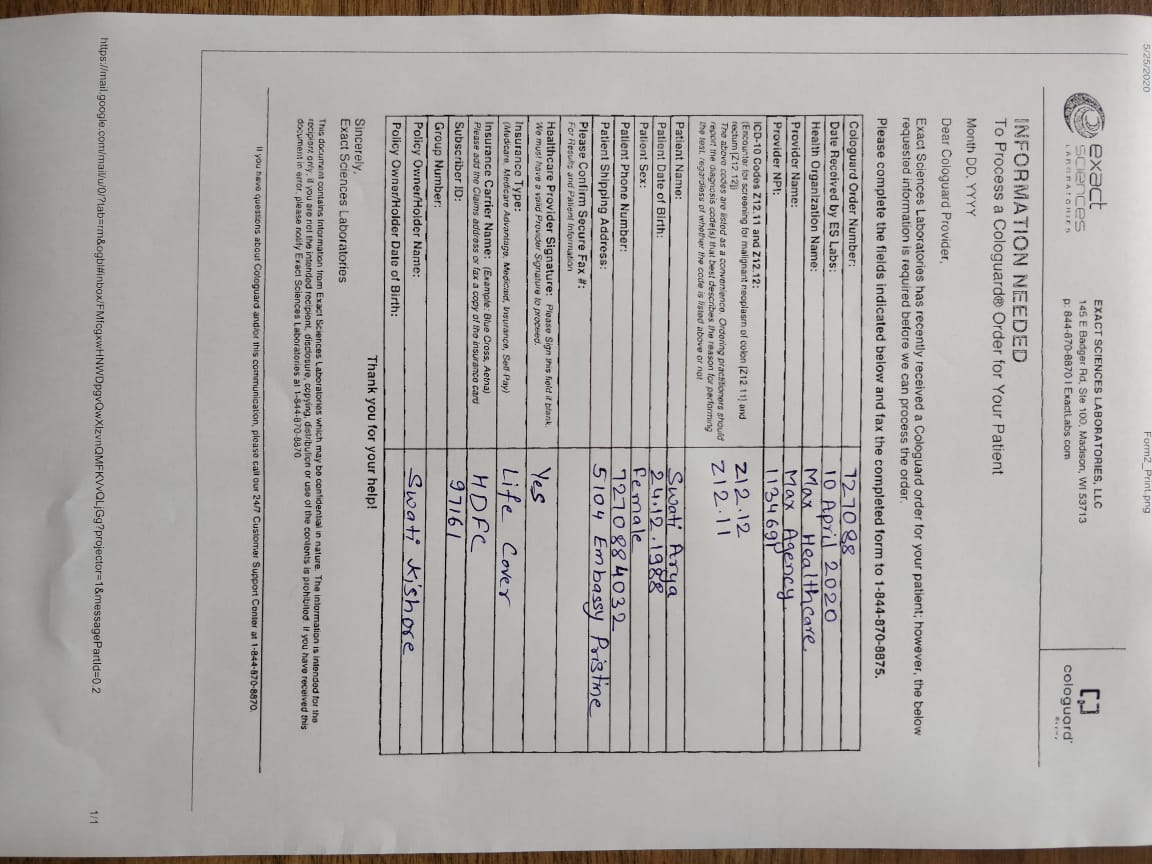 5/25/2020 Form2_Print.png
exact sciences LABORATORIES
EXACT SCIENCES LABORATORIES, LLC
145 E Badger Rd, Ste 100, Madison, WI 53713
p: 844-870-8870 | ExactLabs.com
cologuard
INFORMATION NEEDED
To Process a Cologuard® Order for Your Patient
Month DD, YYYY
Dear Cologuard Provider,
Exact Sciences Laboratories has recently received a Cologuard order for your patient; however, the below
requested information is required before we can process the order.
Please complete the fields indicated below and fax the completed form to 1-844-870-8875.
Cologuard Order Number: 727088
Date Received by ES Labs: 10 April 2020
Health Organization Name: Max Healthcare
Provider Name: Max Agency
Provider NPI: 1134691
ICD-10 Codes Z12.11 and Z12.12: Z12.12
(Encounter for screening for malignant neoplasm of colon [Z12.11] and Z12.11
rectum [Z12.12])
The above codes are listed as a convenience. Ordering practitioners should
report the diagnosis code(s) that best describes the reason for performing
the test, regardless of whether the code is listed above or not
Patient Name: Swati Arya
Patient Date of Birth: 24.12.1988
Patient Sex: Female
Patient Phone Number: 7270884032
Patient Shipping Address: 5104 Embassy Pristine
Please Confirm Secure Fax #:
For Results and Patient Information
Healthcare Provider Signature: Please Sign this field if blank. Yes
We must have a valid Provider Signature to proceed.
Insurance Type: Life Cover
(Medicare, Medicare Advantage, Medicaid, Insurance, Self-Pay)
Insurance Carrier Name: (Example: Blue Cross, Aetna) HDFC
Please add the Claims address or fax a copy of the insurance card
Subscriber ID: 97161
Group Number:
Policy Owner/Holder Name: Swati Kishore
Policy Owner/Holder Date of Birth:
Thank you for your help!
Sincerely,
Exact Sciences Laboratories
This document contains information from Exact Sciences Laboratories which may be confidential in nature. The information is intended for the
recipient only. If you are not the intended recipient, disclosure, copying, distribution or use of the contents is prohibited. If you have received this
document in error, please notify Exact Sciences Laboratories at 1-844-870-8870
If you have questions about Cologuard and/or this communication, please call our 24/7 Customer Support Center at 1-844-870-8870.
https://mail.google.com/mail/u/0/?tab=rm&ogbl#inbox/FMfcgxwHNWDpgvQwXlzvnQMFKVvQLjGg?projector=1&messagePartId=0.2 1/1